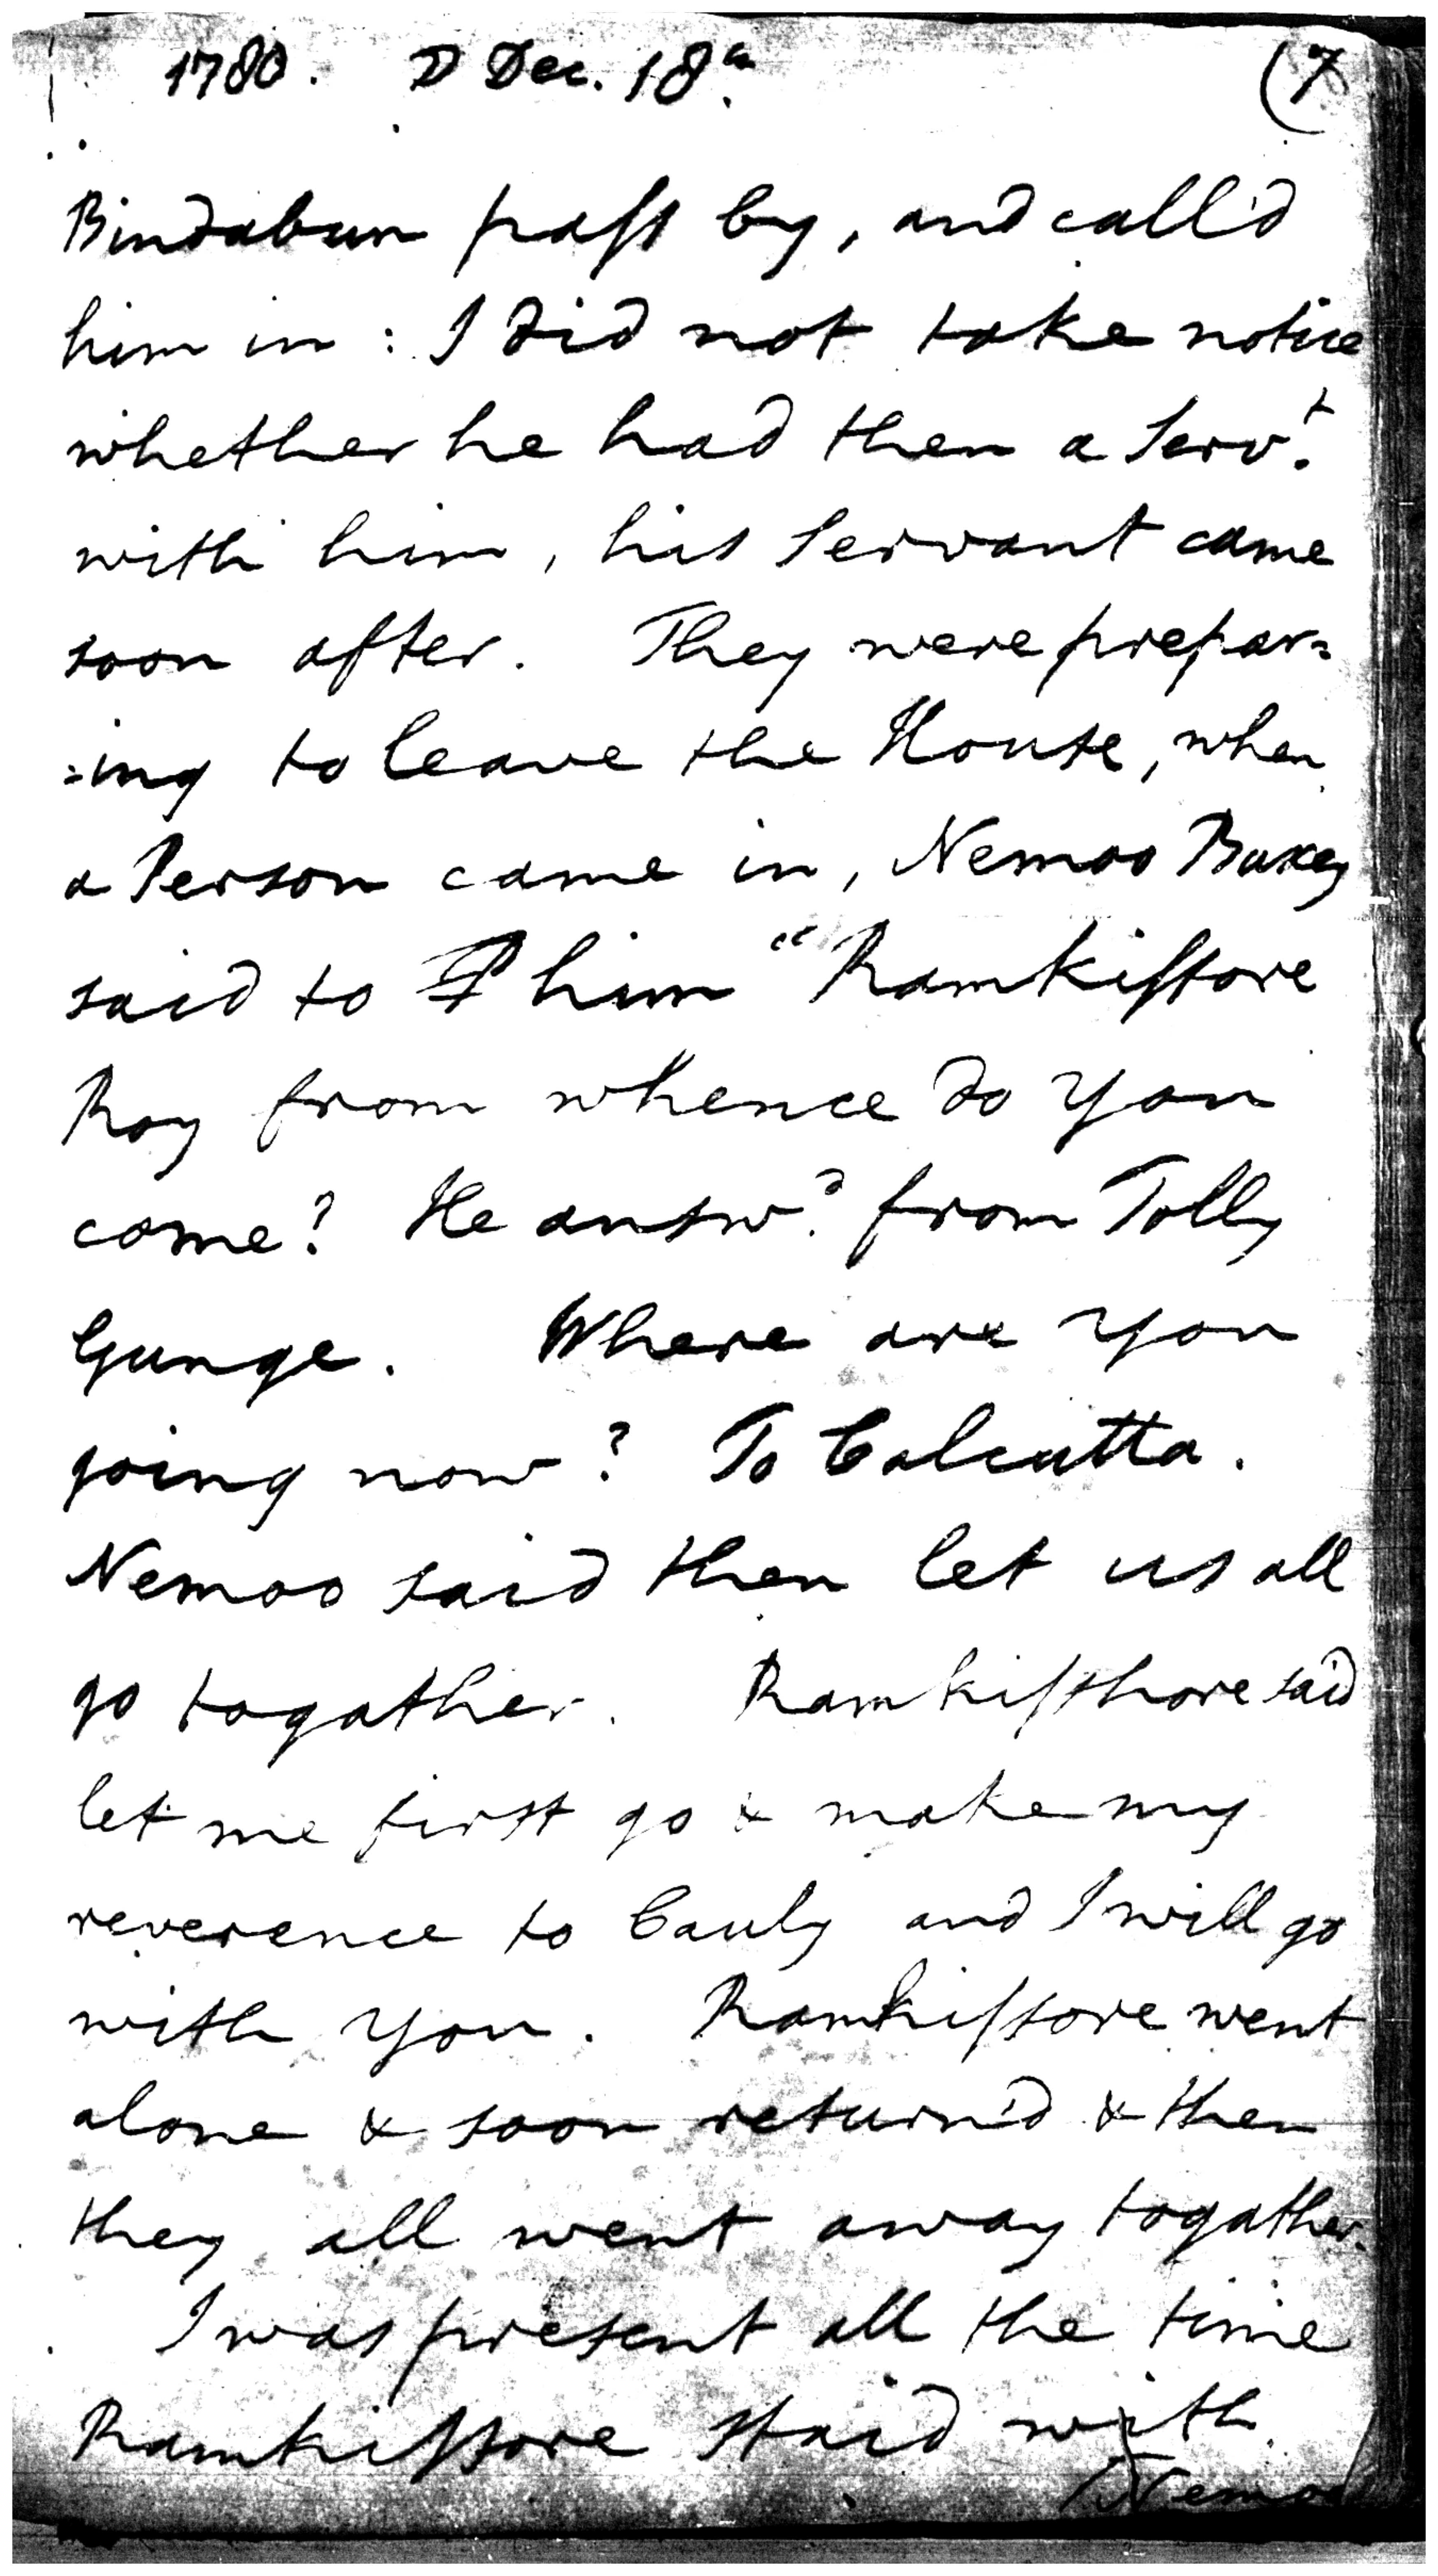 1780. D Dec. 18th. (7
Bindabun paſs by, and call'd
him in : I did not take notice
whether he had then a Servt.
with him, his Servant came
soon after. They were prepar=
=ing to leave the House, when
a Person came in, Nemoo Buxey
said to him "Ramkiſsore
Roy from whence do you
come? He answd. from Tolly
Gunge. Where are you
going now? To Calcutta.
Nemoo said then let us all
go togather. Ramkiſshore said
let me first go & make my
reverence to Cauly and I will go
with you. Ramkiſsore went
alone & soon return'd & then
they all went away togather.
I was present all the time
Ramkiſsore staid with
Nemoo